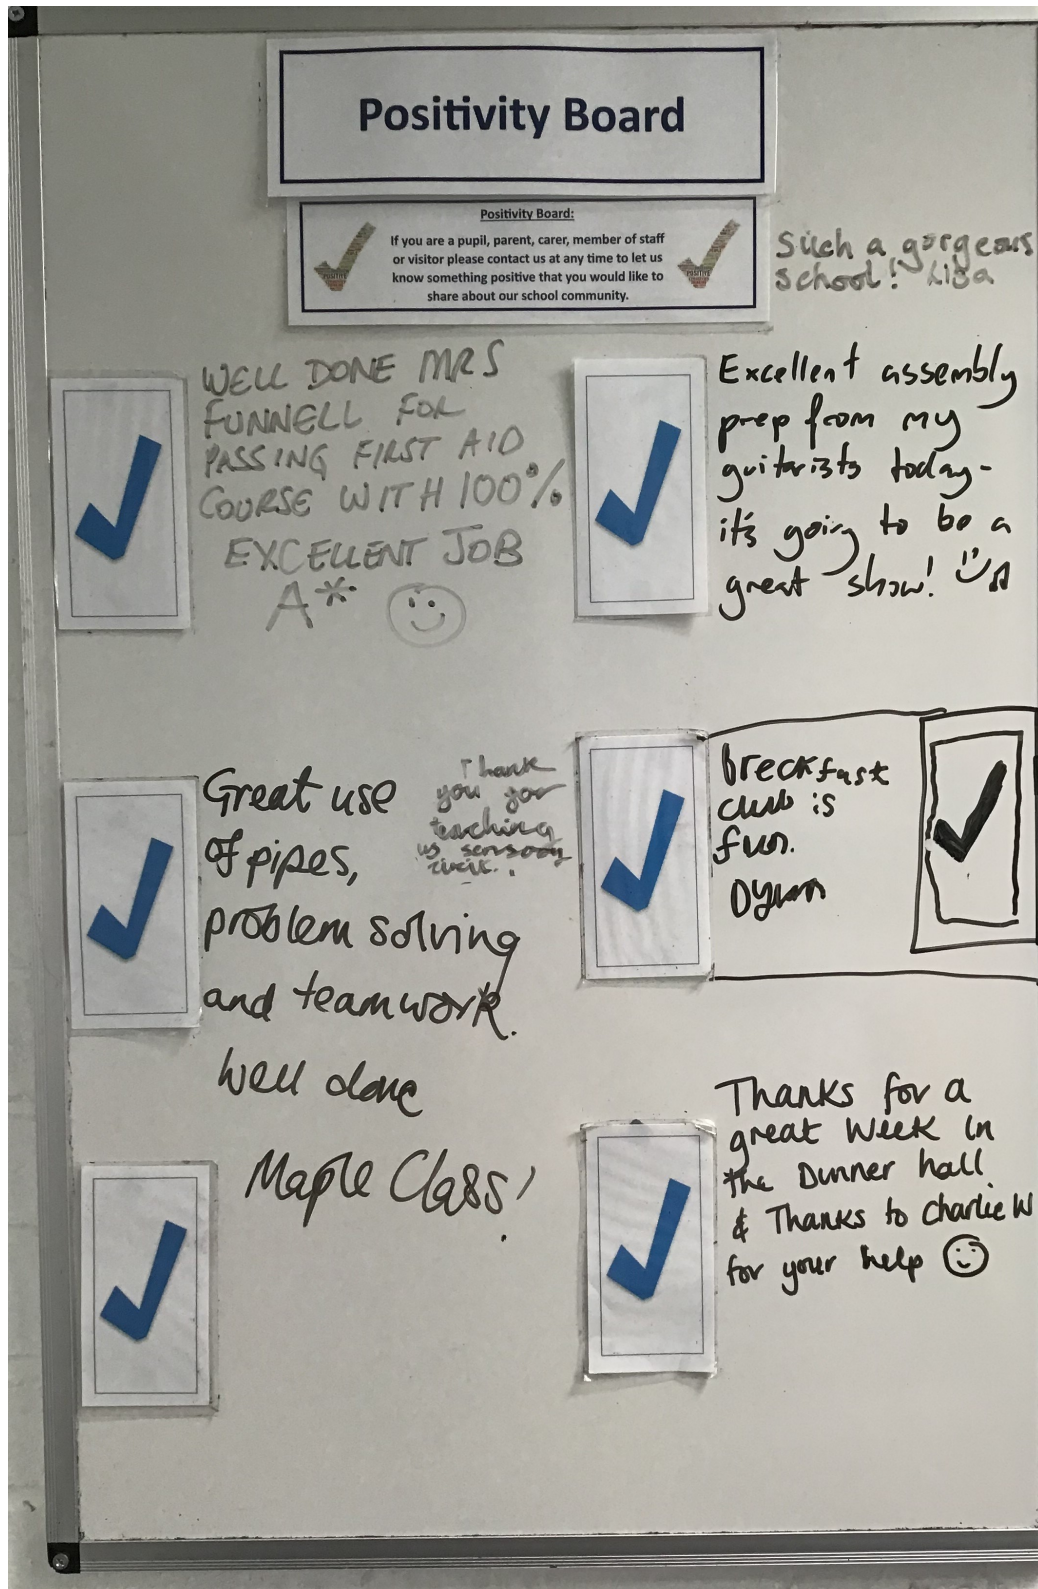 Positivity Board
Positivity Board:
If you are a pupil, parent, carer, member of staff
or visitor please contact us at any time to let us
know something positive that you would like to
share about our school community.
Such a gorgeous
school! Lisa
WELL DONE MRS
FUNNELL FOR
PASSING FIRST AID
COURSE WITH 100%
EXCELLENT JOB
A*
Excellent assembly
prep from my
guitarists today-
it's going to be a
great show!
Great use
of pipes,
problem solving
and teamwork.
Well done
Maple Class!
Thank
you for
teaching
us sensory
breckfast
club is
fun.
Thanks for a
great week in
the Dunner hall
& Thanks to Charlie W
for your help